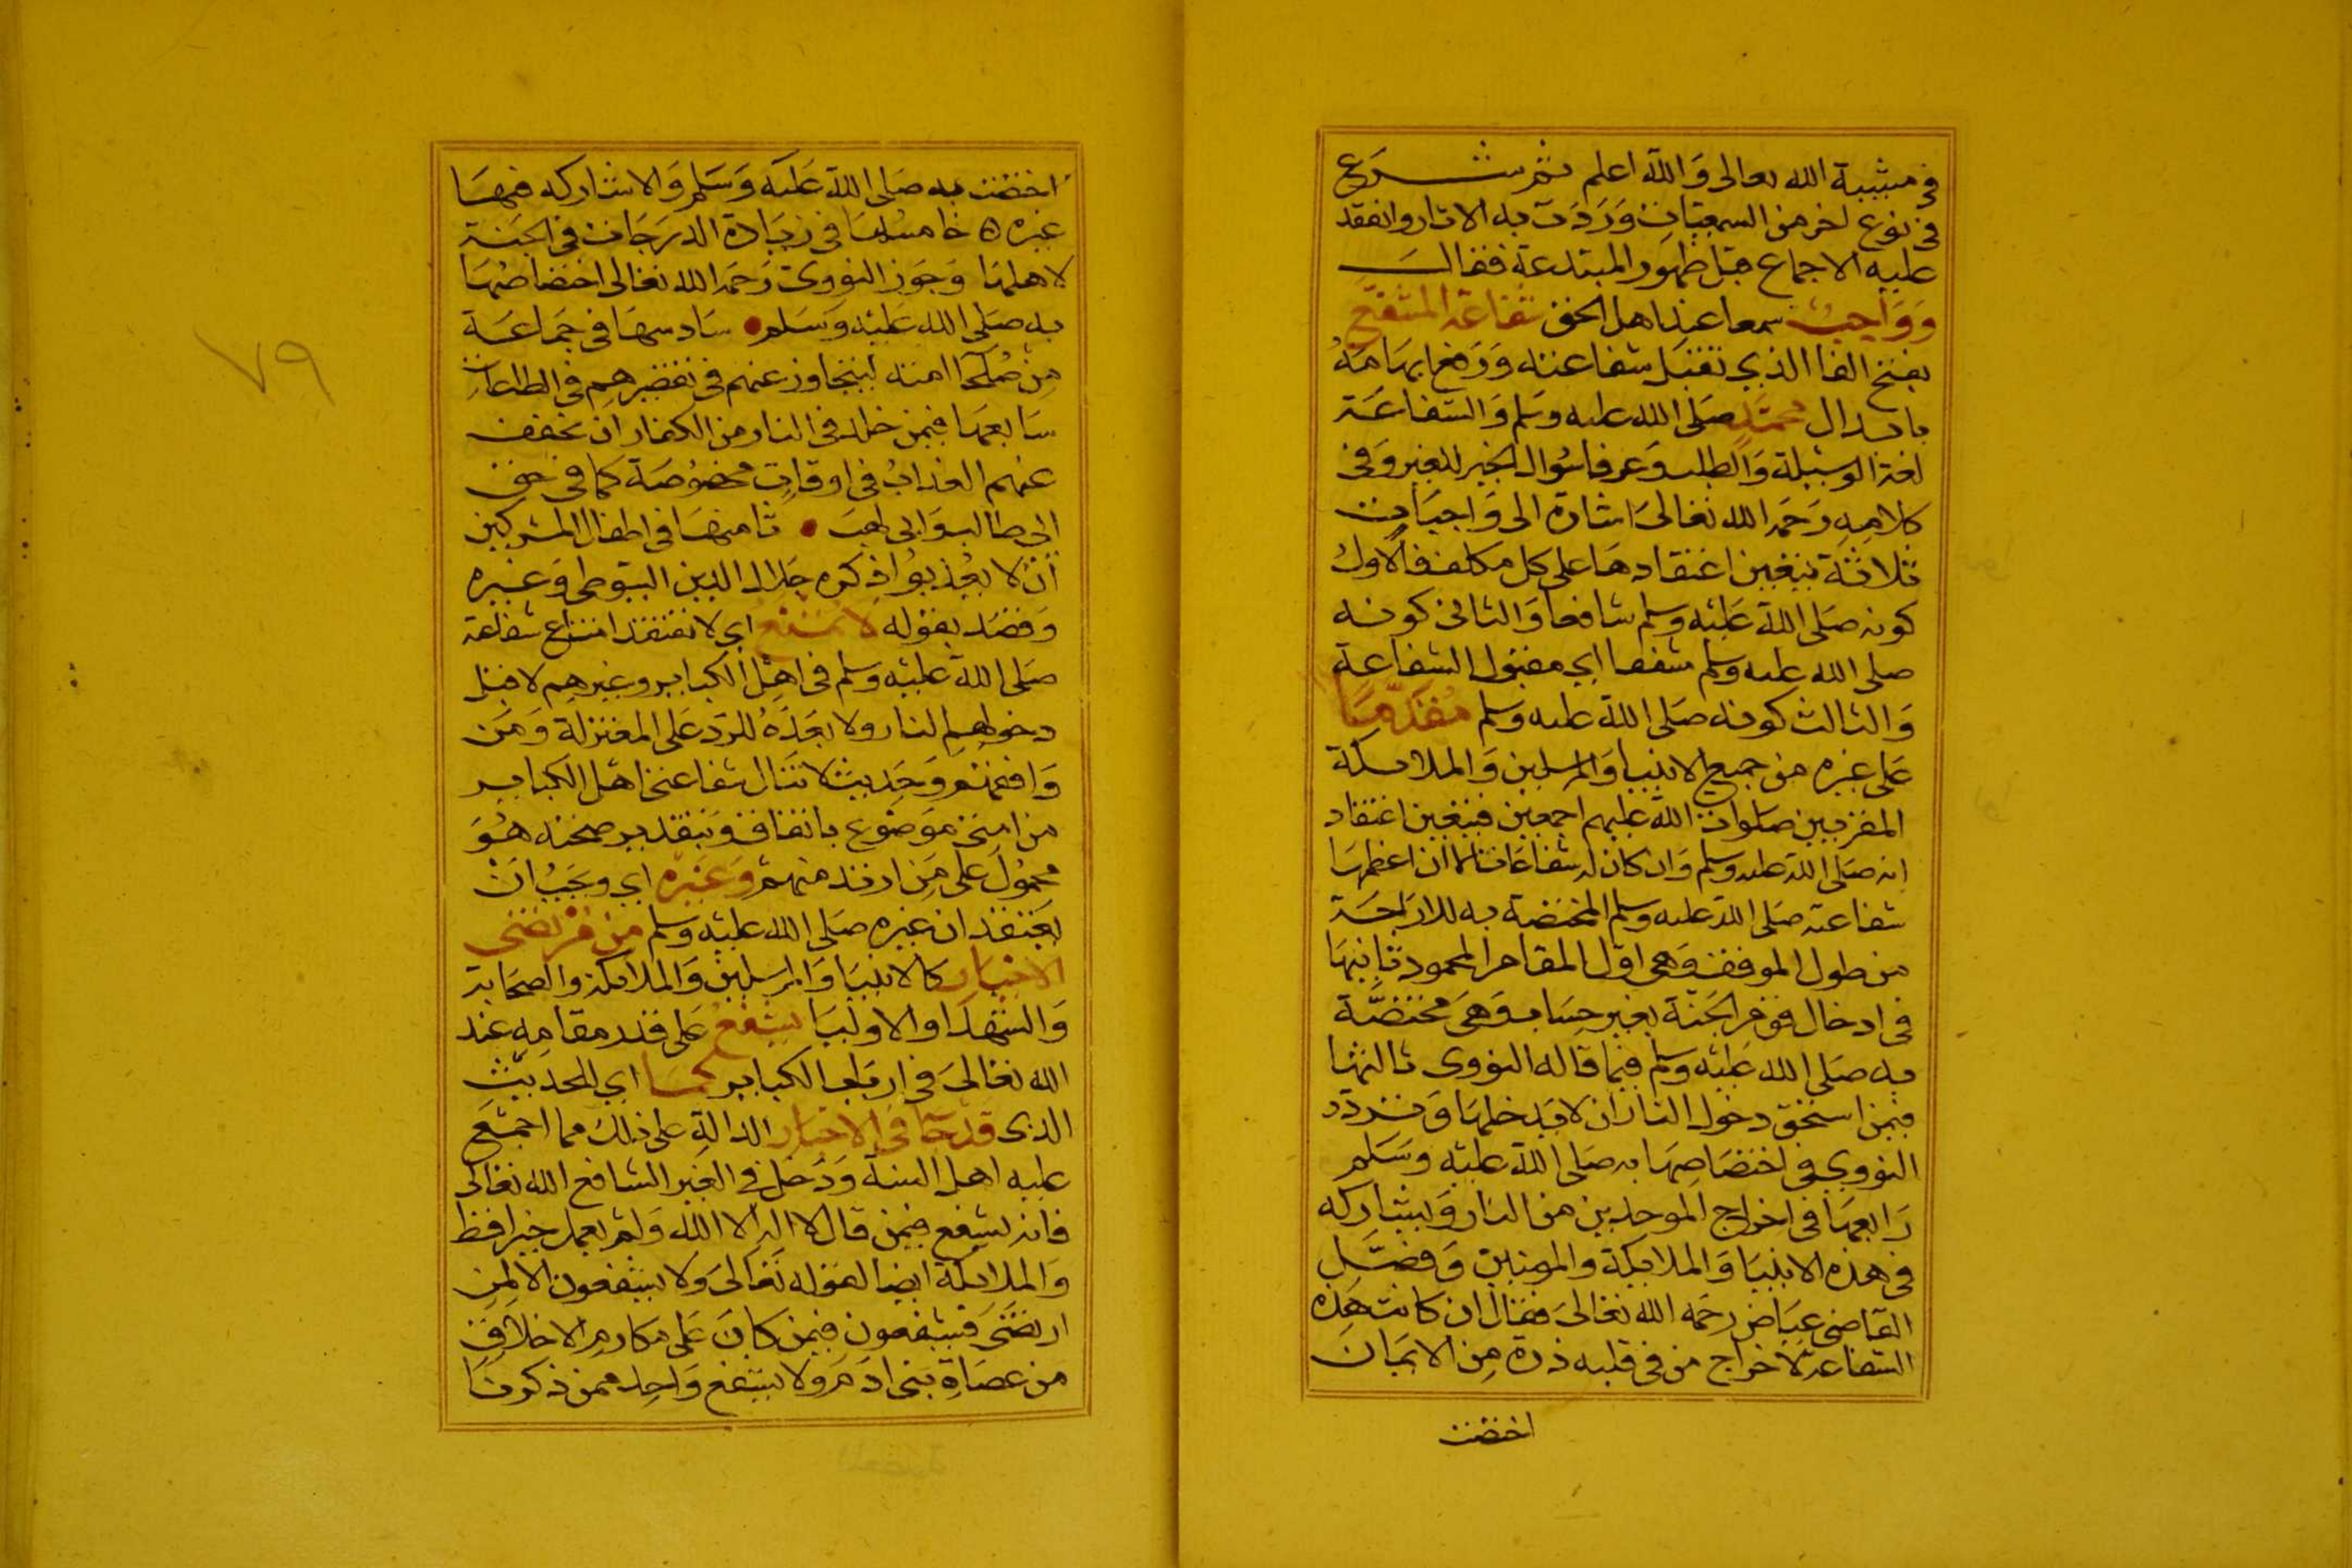 في مشيبة الله تعالى والله اعلم ثم شرع
في نوع اخر من السمعيات وردت به الاثار وانعقد
عليه الاجماع قبل ظهور المبتدعة فقال
وواجب سمعا عند اهل الحق شفاعة المشفع
بفتح الفا الذي تقبل شفاعته ورفع ابهامه
بابدال محمد صلى الله عليه وسلم والشفاعة
لغة الوسيلة والطلب وعرفا سؤال الخير للغير وفي
كلامه رحمه الله تعالى اشارة الى واجبات
ثلاثة يتعين اعتقادها على كل مكلف فالاول
كونه صلى الله عليه وسلم شافعا والثاني كونه
صلى الله عليه وسلم مشفعا اي مقبول الشفاعة
والثالث كونه صلى الله عليه وسلم مقدما
على غيره من جميع الانبيا والمرسلين والملائكة
المقربين صلوات الله عليهم اجمعين فيتعين اعتقاد
انه صلى الله عليه وسلم وان كان له شفاعات الا ان اعظمها
شفاعته صلى الله عليه وسلم المختصة به للاراحة
من طول الموقف وهي اول المقام المحمود ثانيها
في ادخال قوم الجنة بغير حساب وهي مختصة
به صلى الله عليه وسلم فيما قاله النووي ثالثها
فيمن استحق دخول النار ان لا يدخلها وتردد
النووي في اختصاصها به صلى الله عليه وسلم
رابعها في اخراج الموحدين من النار ويشاركه
في هذه الانبيا والملايكة والمومنين وفصل
القاضي عياض رحمه الله تعالى فقال ان كانت هذه
الشفاعة لاخراج من في قلبه ذرة من الايمان
اختصت
اختصت به صلى الله عليه وسلم والا شاركه فيها
غيره ه خامسها في زيادة الدرجات في الجنة
لاهلها وجوز النووي رحمه الله تعالى اختصاصها
به صلى الله عليه وسلم سادسها في جماعة
من صلحا امته ليتجاوز عنهم في تقصيرهم في الطاعات
سابعها فيمن خلد في النار من الكفار ان يخفف
عنهم العذاب في اوقات مخصوصة كما في حق
ابي طالب وابي لهب ثامنها في اطفال المشركين
ان لا يعذبوا ذكره جلال الدين السيوطي وغيره
وقصد بقوله لا تمنع اي لا تعتقد امتناع شفاعته
صلى الله عليه وسلم في اهل الكباير وغيرهم لا قبل
دخولهم النار ولا بعده للرد على المعتزلة ومن
وافقهم وحديث لا تنال شفاعتي اهل الكباير
من امتي موضوع باتفاق وبتقدير صحته هو
محمول على من ارتد منهم وغيره اي ويجب ان
يعتقد ان غيره صلى الله عليه وسلم من مرتضى
الاخيار كالانبيا والمرسلين والملائكة والصحابة
والشهدا والاوليا يشفع على قدر مقامه عند
الله تعالى في ارباب الكباير كما اي للحديث
الذي قد جا في الاخبار الدالة على ذلك مما اجمع
عليه اهل السنة ودخل في الغير الشافع الله تعالى
فانه يشفع فيمن قال لا اله الا الله ولم يعمل خيرا قط
والملايكة ايضا لقوله تعالى ولا يشفعون الا لمن
ارتضى فيشفعون فيمن كان على مكارم الاخلاق
من عصاة بني ادم ولا يشفع واحد ممن ذكرنا
٧٩